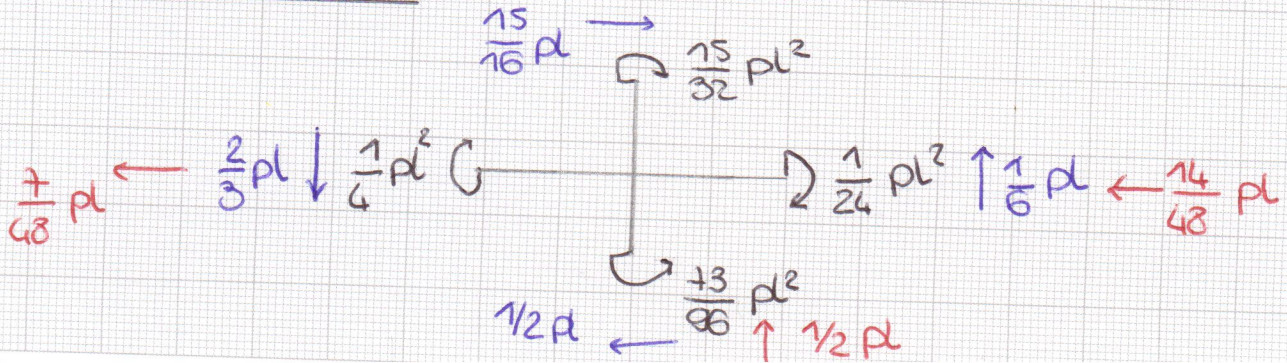 15/16 pl →
15/32 pl²
7/48 pl ← 2/3 pl ↓ 1/4 pl²
1/24 pl² ↑ 1/6 pl ← 14/48 pl
73/96 pl²
1/2 pl ← ↑ 1/2 pl